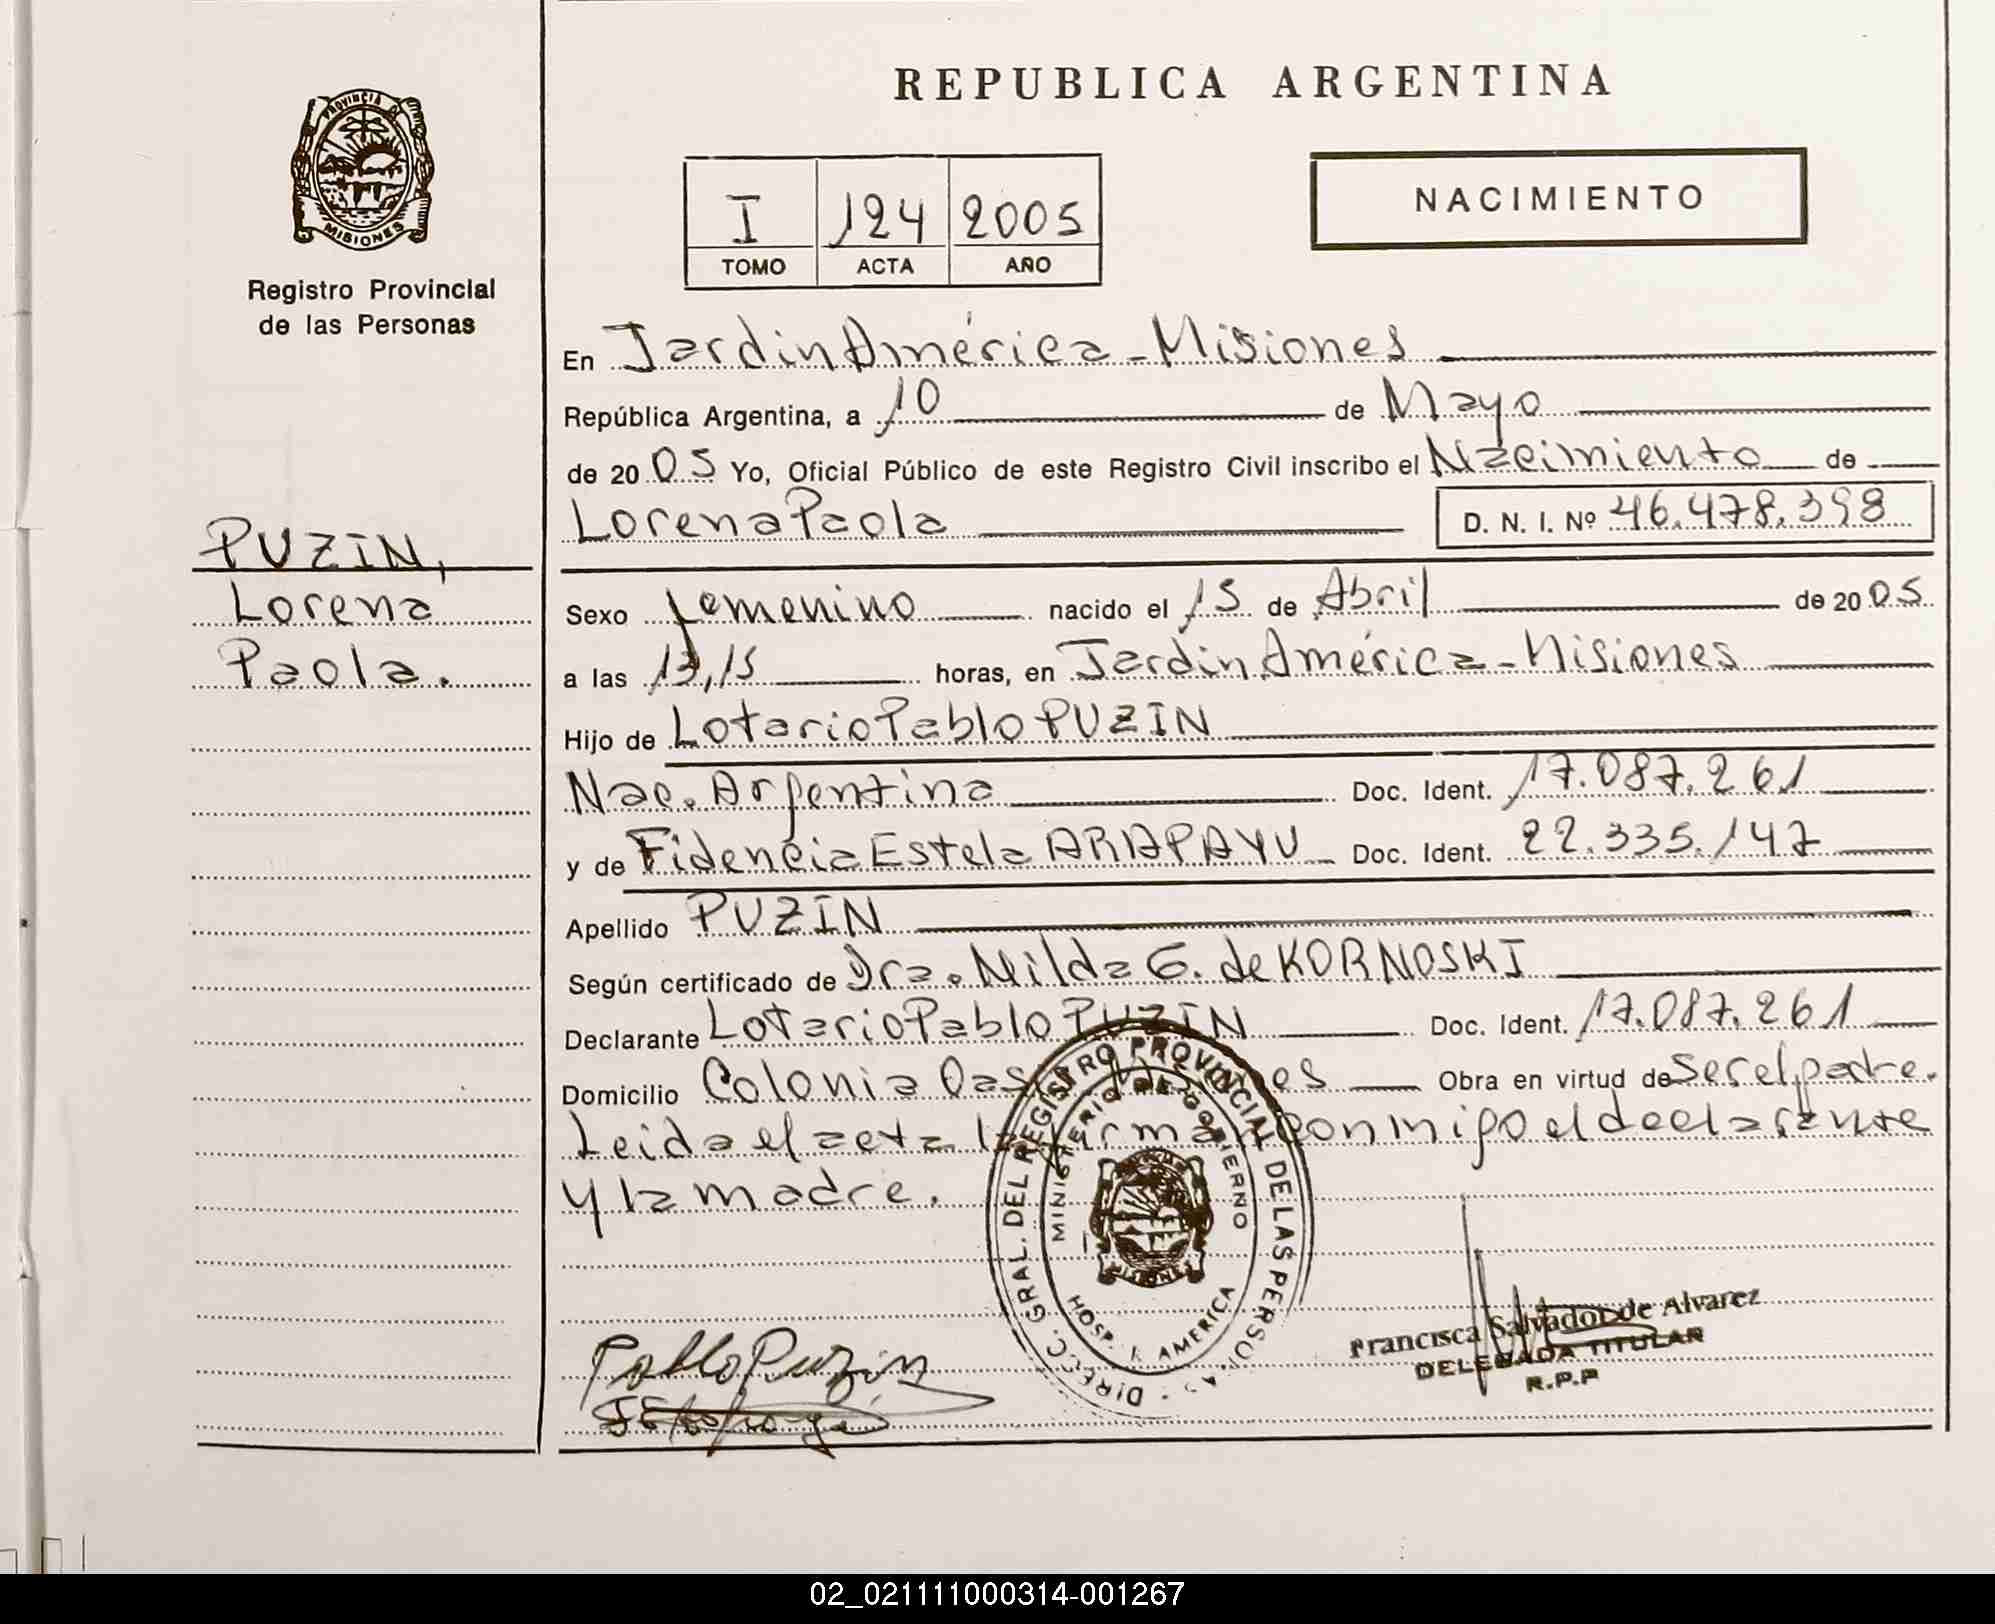 PROVINCIA DE
MISIONES
Registro Provincial
de las Personas
PUZIN,
Lorena
Paola.
REPUBLICA ARGENTINA
I 124 2005
TOMO ACTA AÑO
NACIMIENTO
En Jardin América - Misiones
República Argentina, a 10 de Mayo
de 20 05 Yo, Oficial Público de este Registro Civil inscribo el Nacimiento de
Lorena Paola D. N. I. Nº 46.478.398
Sexo femenino nacido el 15 de Abril de 20 05
a las 13,15 horas, en Jardin América - Misiones
Hijo de Lotario Pablo PUZIN
Nac. Argentina Doc. Ident. 17.087.261
y de Fidencia Estela ARAPAYU Doc. Ident. 22.335.147
Apellido PUZIN
Según certificado de Dra. Nilda G. de KORNOSKI
Declarante Lotario Pablo PUZIN Doc. Ident. 17.087.261
Domicilio Colonia Oas Obra en virtud de ser el padre.
Leida el acta la firman conmigo el declarante
y la madre.
DIRECC. GRAL. DEL REGISTRO PROVINCIAL DE LAS PERSONAS
MINISTERIO DE GOBIERNO
MISIONES
HOSP. J. AMERICA
Pablo Puzin
Francisca Salvador de Alvarez
DELEGADA TITULAR
R.P.P
02_021111000314-001267